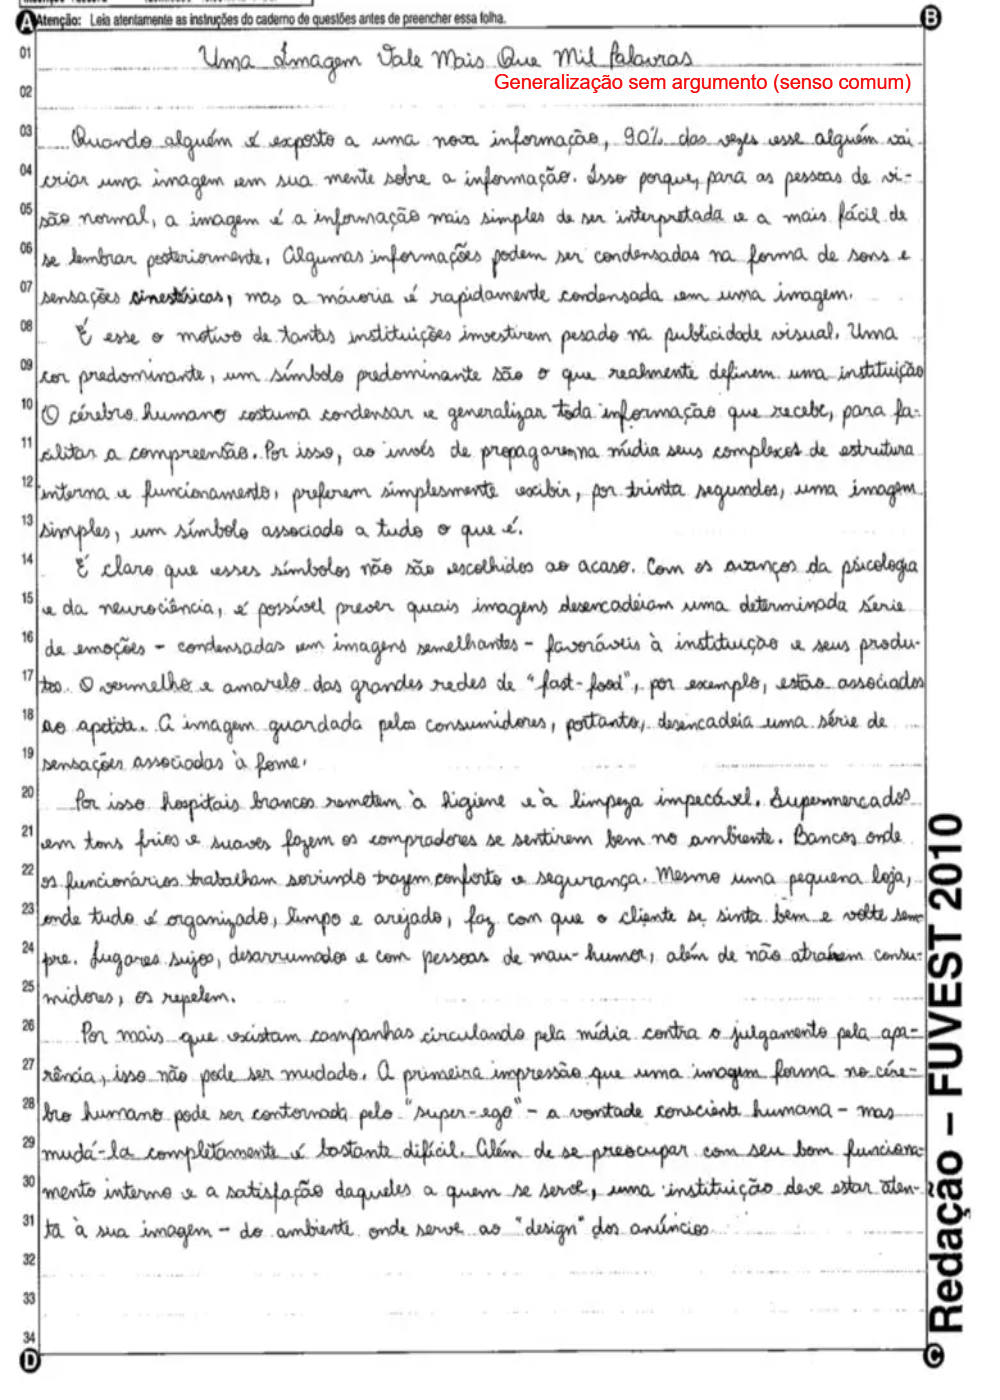 Atenção: Leia atentamente as instruções do caderno de questões antes de preencher essa folha.
A
B
01 Uma Imagem Vale Mais Que Mil Palavras
Generalização sem argumento (senso comum)
02
03 Quando alguém é exposto a uma nova informação, 90% das vezes esse alguém vai
04 criar uma imagem em sua mente sobre a informação. Isso porque, para as pessoas de vi-
05 são normal, a imagem é a informação mais simples de ser interpretada e a mais fácil de
06 se lembrar posteriormente. Algumas informações podem ser condensadas na forma de sons e
07 sensações sinestésicas, mas a maioria é rapidamente condensada em uma imagem.
08 É esse o motivo de tantas instituições investirem pesado na publicidade visual. Uma
09 cor predominante, um símbolo predominante são o que realmente definem uma instituição
10 O cérebro humano costuma condensar e generalizar toda informação que recebe, para fa-
11 cilitar a compreensão. Por isso, ao invés de propagarem na mídia seus complexos de estrutura
12 interna e funcionamento, preferem simplesmente exibir, por trinta segundos, uma imagem
13 simples, um símbolo associado a tudo o que é.
14 É claro que esses símbolos não são escolhidos ao acaso. Com os avanços da psicologia
15 e da neurociência, é possível prever quais imagens desencadeiam uma determinada série
16 de emoções - condensadas em imagens semelhantes - favoráveis à instituição e seus produ-
17 tos. O vermelho e amarelo das grandes redes de "fast-food", por exemplo, estão associados
18 ao apetite. A imagem guardada pelos consumidores, portanto, desencadeia uma série de
19 sensações associadas à fome.
20 Por isso hospitais brancos remetem à higiene e à limpeza impecável. Supermercados
21 em tons frios e suaves fazem os compradores se sentirem bem no ambiente. Bancos onde
22 os funcionários trabalham sorrindo trazem conforto e segurança. Mesmo uma pequena loja,
23 onde tudo é organizado, limpo e arejado, faz com que o cliente se sinta bem e volte sem
24 pre. Lugares sujos, desarrumados e com pessoas de mau-humor, além de não atraírem consu-
25 midores, os repelem.
26 Por mais que existam campanhas circulando pela mídia contra o julgamento pela apa-
27 rência, isso não pode ser mudado. A primeira impressão que uma imagem forma no cére-
28 bro humano pode ser contornada pelo "super-ego" - a vontade consciente humana - mas
29 mudá-la completamente é bastante difícil. Além de se preocupar com seu bom funciona-
30 mento interno e a satisfação daqueles a quem se serve, uma instituição deve estar aten-
31 ta à sua imagem - do ambiente onde serve ao "design" dos anúncios
32
33
34
D
C
Redação – FUVEST 2010